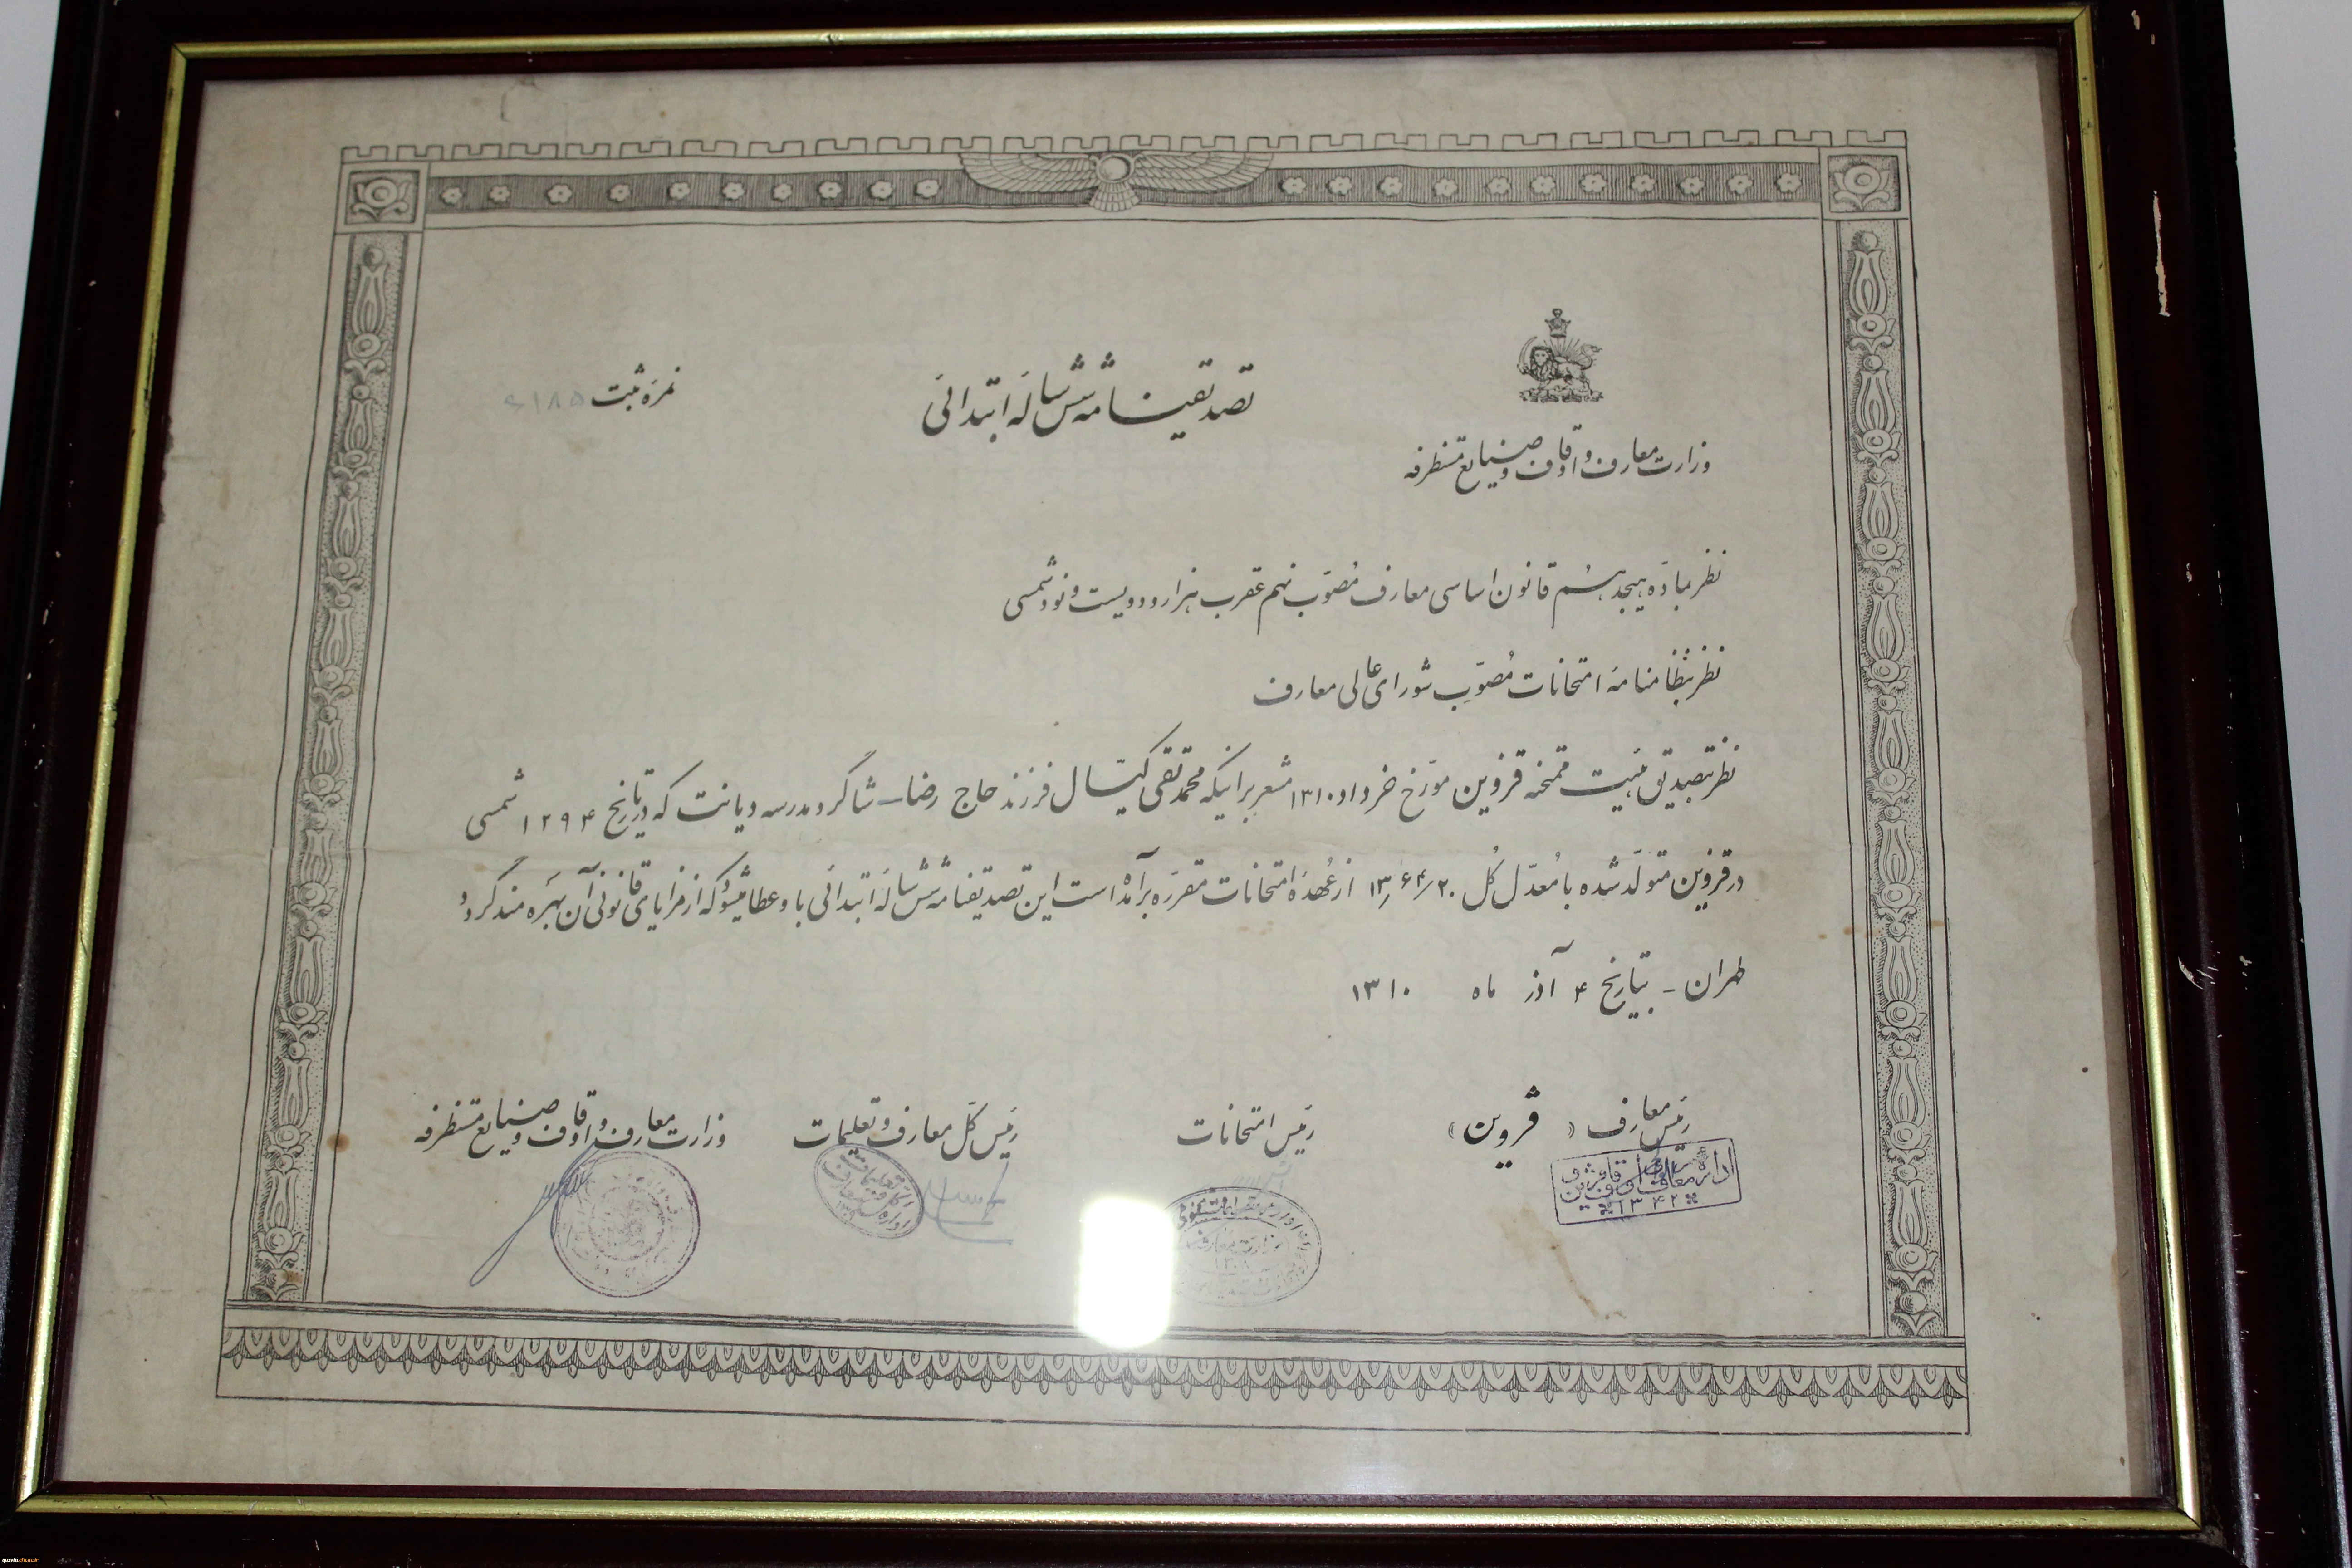 تصدیقنامه شش ساله ابتدائی
نمره ثبت
وزارت معارف و اوقاف و صنایع مستظرفه
نظر بماده هیجدهم قانون اساسی معارف مصوّب نهم عقرب هزار و دویست و نود شمسی
نظر بنظامنامه امتحانات مصوّب شورای عالی معارف
نظر بتصدیق هیئت ممتحنه قزوین مورّخ خرداد ۱۳۱۰ مشعر بر اینکه محمد تقی کیّال فرزند حاج رضا شاگرد مدرسه دیانت که در تاریخ ۱۲۹۴ شمسی
در قزوین متولّد شده با مُعدّل کُل ۱۳٫۶۴/۲۰ از عُهده امتحانات مقرّره برآمده است این تصدیقنامه شش ساله ابتدائی باو عطا میشود که از مزایای قانونی آن بهره مند گردد
طهران - بتاریخ ۴ آذر ماه ۱۳۱۰
رئیس معارف ( قزوین )
رئیس امتحانات
رئیس کل معارف و تعلیمات
وزارت معارف و اوقاف و صنایع مستظرفه
اداره معارف و اوقاف قزوین
۱۳۴۲
qazvin.cfu.ac.ir